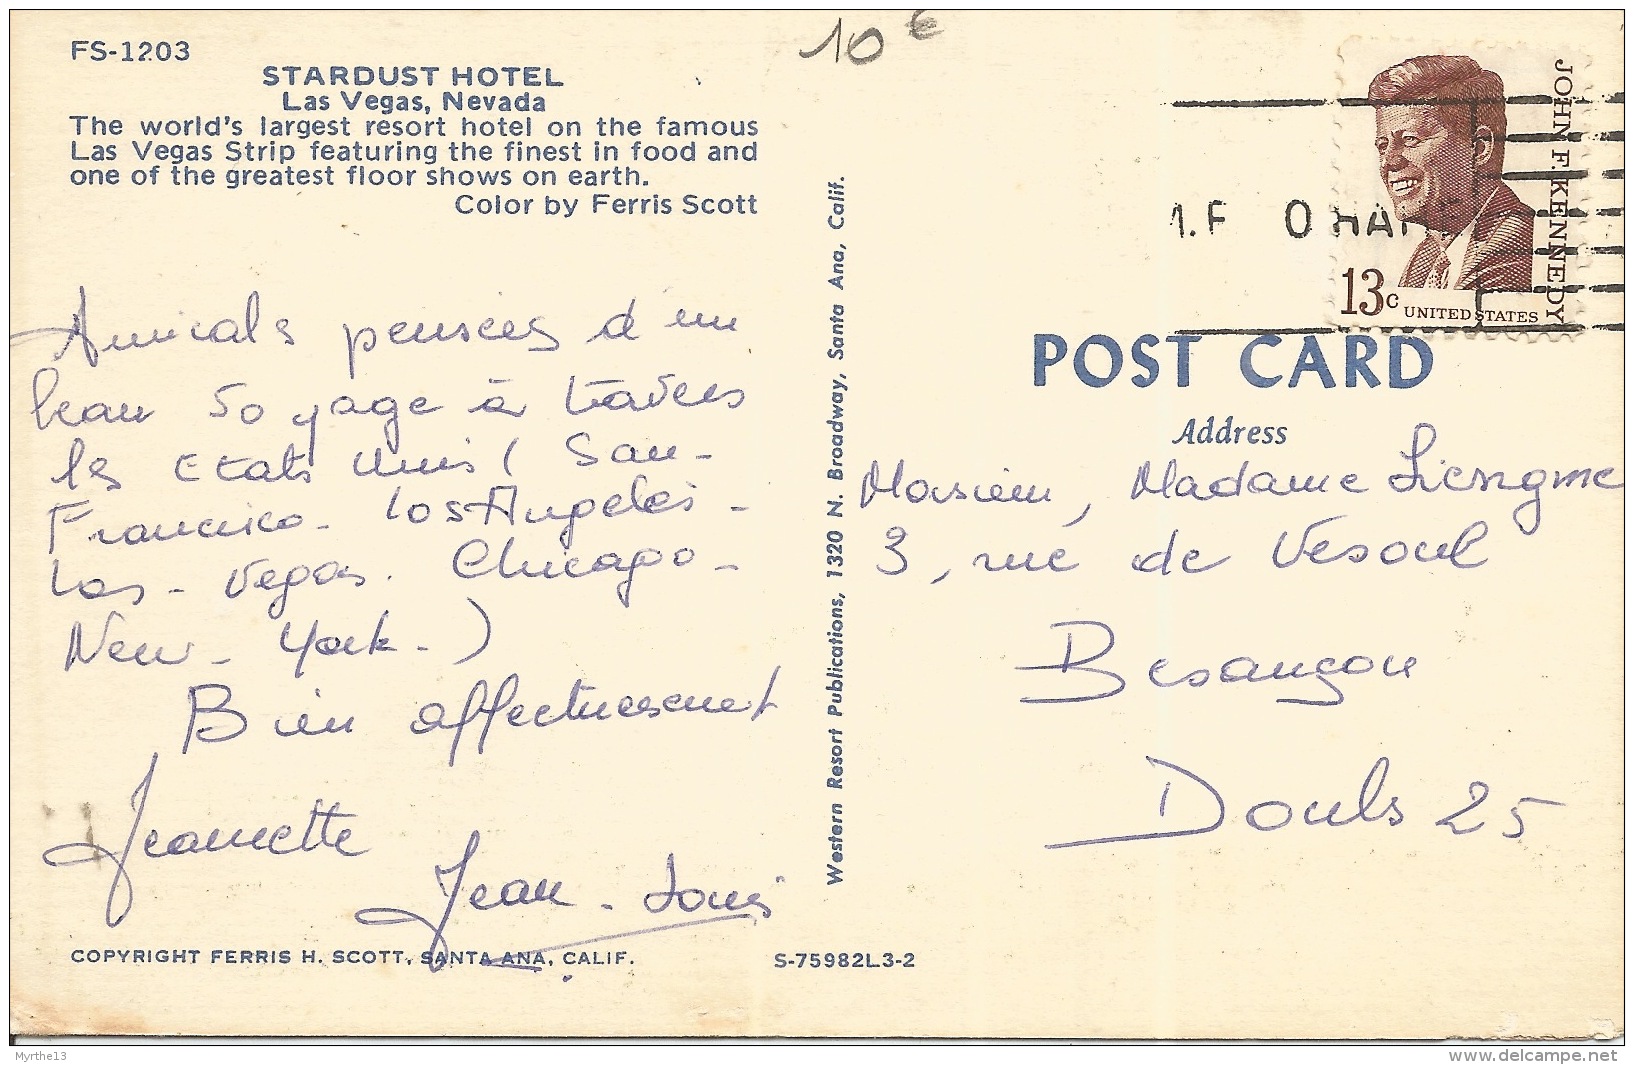 10 €
FS-1203
STARDUST HOTEL
Las Vegas, Nevada
The world's largest resort hotel on the famous
Las Vegas Strip featuring the finest in food and
one of the greatest floor shows on earth.
Color by Ferris Scott
Amicals pensées d'un
beau voyage à travers
les Etats Unis ( San-
Francisco - Los Angeles -
Las - Vegas. Chicago -
New - York - )
Bien affectueusement
Jeannette
Jean - Louis
COPYRIGHT FERRIS H. SCOTT, SANTA ANA, CALIF.
S-75982L3-2
Western Resort Publications, 1320 N. Broadway, Santa Ana, Calif.
JOHN F. KENNEDY
13c UNITED STATES
POST CARD
Address
Monsieur, Madame
3, rue de Vesoul
Besançon
Doubs 25
Myrthe13
www.delcampe.net